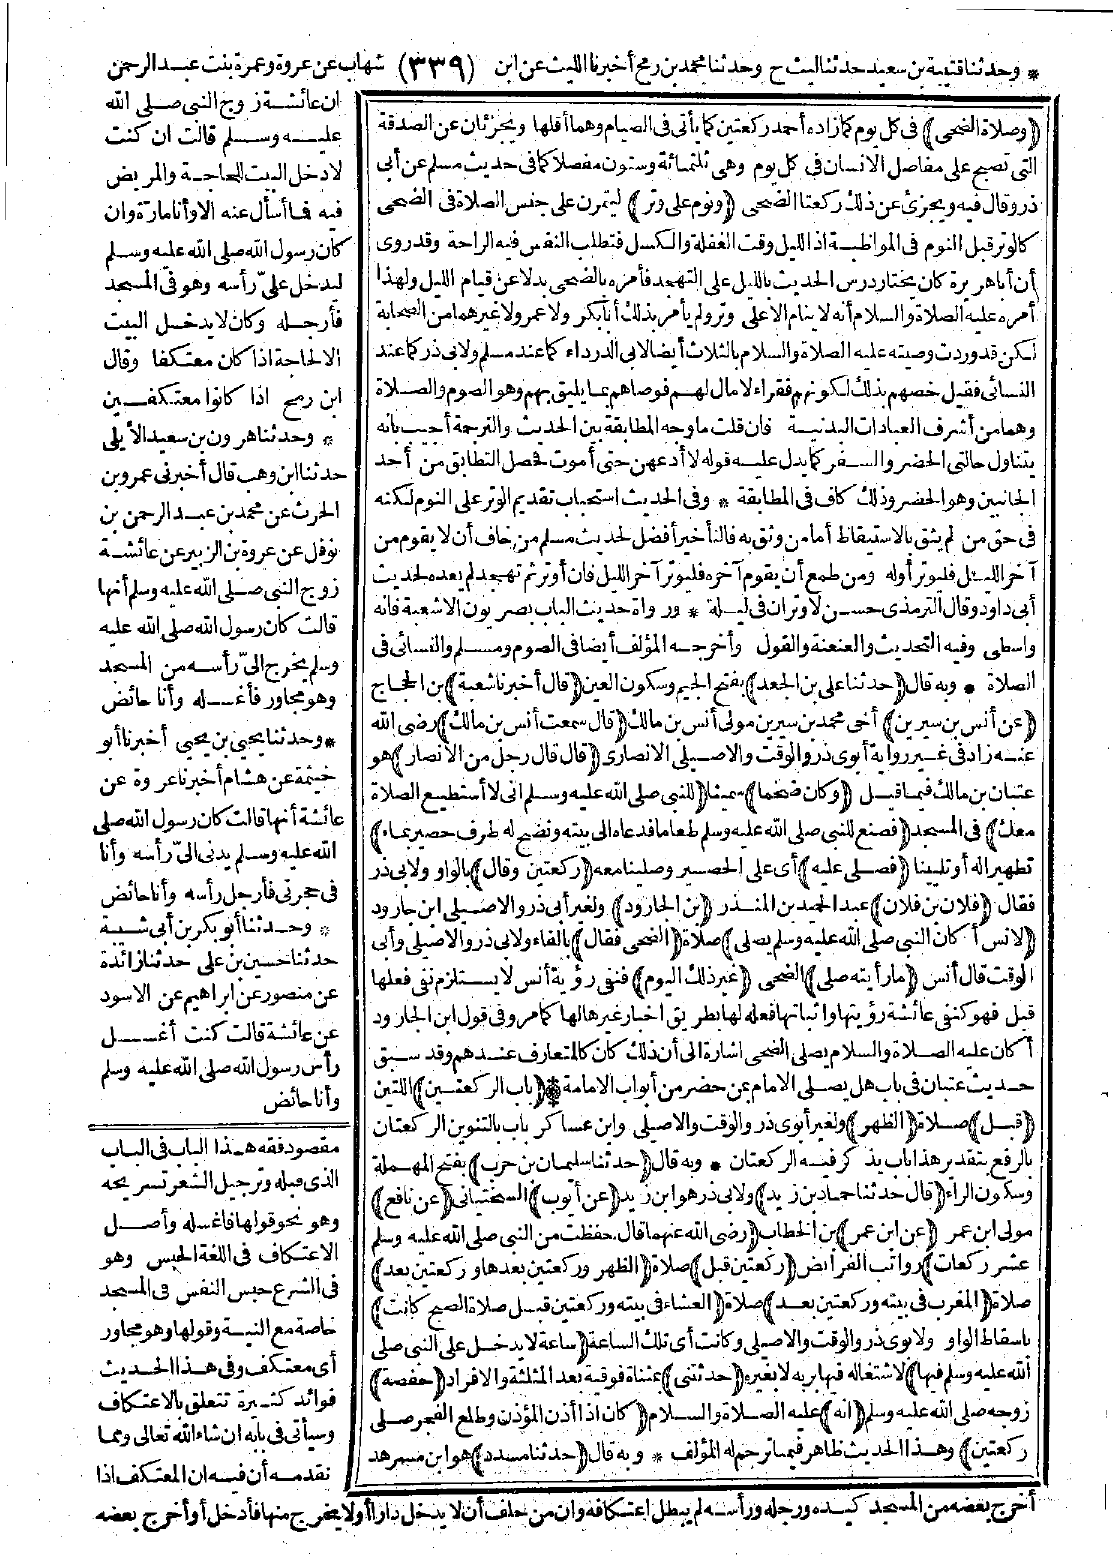 * وحدثنا قتيبة بن سعيد حدثنا ليث ح وحدثنا محمد بن رمح أخبرنا الليث عن ابن (٣٣٩) شهاب عن عروة وعمرة بنت عبد الرحمن
(وصلاة الضحى) في كل يوم كما زاده أحمد ركعتين كما يأتي في الصيام وهما أقلها ويجزئان عن الصدقة
التي تصبح على مفاصل الانسان في كل يوم وهي ثلثمائة وستون مفصلا كما في حديث مسلم عن أبي
ذر وقال فيه ويجزئ عن ذلك ركعتا الضحى (ونوم على وتر) ليتمرن على جنس الصلاة في الضحى
كالوتر قبل النوم في المواظبة اذ الليل وقت الغفلة والكسل فتطلب النفس فيه الراحة وقد روى
أن أبا هريرة كان يختار درس الحديث بالليل على التهجد فأمره بالضحى بدلا عن قيام الليل ولهذا
أمره عليه الصلاة والسلام أنه لا ينام الا على وتر ولم يأمر بذلك أبا بكر ولا عمر ولا غيرهما من الصحابة
لكن قد وردت وصيته عليه الصلاة والسلام بالثلاث أيضا لابي الدرداء كما عند مسلم ولابي ذر كما عند
النسائي فقيل خصهم بذلك لكونهم فقراء لا مال لهم فوصاهم بما يليق بهم وهو الصوم والصلاة
وهما من أشرف العبادات البدنية فان قلت ما وجه المطابقة بين الحديث والترجمة أجيب بانه
يتناول حالتي الحضر والسفر كما يدل عليه قوله لا أدعهن حتى أموت فحصل التطابق من أحد
الجانبين وهو الحضر وذلك كاف في المطابقة * وفي الحديث استحباب تقديم الوتر على النوم لكنه
في حق من لم يثق بالاستيقاظ أما من وثق به فالتأخير أفضل لحديث مسلم من خاف أن لا يقوم من
آخر الليل فليوتر أوله ومن طمع أن يقوم آخره فليوتر آخر الليل فان أوتر ثم تهجد لم يعده لحديث
أبي داود وقال الترمذي حسن لا وتران في ليلة * ورواة حديث الباب بصريون الا شعبة فانه
واسطي وفيه التحديث والعنعنة والقول وأخرجه المؤلف أيضا في الصوم ومسلم والنسائي في
الصلاة * وبه قال (حدثنا علي بن الجعد) بفتح الجيم وسكون العين (قال أخبرنا شعبة) بن الحجاج
(عن أنس بن سيرين) أخي محمد بن سيرين مولى أنس بن مالك (قال سمعت أنس بن مالك) رضى الله
عنه زاد في غير رواية أبوي ذر والوقت والاصيلي الانصاري (قال قال رجل من الانصار) هو
عتبان بن مالك فيما قيل (وكان ضخما) سمينا (للنبي صلى الله عليه وسلم انى لا أستطيع الصلاة
معك) في المسجد (فصنع للنبي صلى الله عليه وسلم طعاما فدعاه الى بيته ونضح له طرف حصير بماء)
تطهيرا له أو تليينا (فصلى عليه) أى على الحصير وصلينا معه (ركعتين وقال) بالواو ولابي ذر
فقال (فلان بن فلان) عبد الحميد بن المنذر (بن الجارود) ولغير أبي ذر والاصيلي ابن جارود
(لانس أكان النبي صلى الله عليه وسلم يصلى) صلاة (الضحى فقال) بالفاء ولابي ذر والاصيلي وأبي
الوقت قال أنس (ما رأيته صلى) الضحى (غير ذلك اليوم) فنفى رؤية أنس لا يستلزم نفى فعلها
قبل فهو كنفى عائشة رؤيتها واثباتها فعله لها بطريق اخبار غيرها لها كما مر وفي قول ابن الجارود
أكان عليه الصلاة والسلام يصلى الضحى اشارة الى أن ذلك كان كالمتعارف عندهم وقد سبق
حديث عتبان في باب هل يصلى الامام بمن حضر من أبواب الامامة * (باب الركعتين) اللتين
(قبل) صلاة (الظهر) ولغير أبوي ذر والوقت والاصيلي وابن عساكر باب بالتنوين الركعتان
بالرفع بتقدير هذا باب يذكر فيه الركعتان * وبه قال (حدثنا سليمان بن حرب) بفتح المهملة
وسكون الراء (قال حدثنا حماد بن زيد) ولابي ذر هو ابن زيد (عن أيوب) السختياني (عن نافع)
مولى ابن عمر (عن ابن عمر) بن الخطاب (رضى الله عنهما قال حفظت من النبي صلى الله عليه وسلم
عشر ركعات) رواتب الفرائض (ركعتين قبل) صلاة (الظهر وركعتين بعدها وركعتين بعد)
صلاة (المغرب في بيته وركعتين بعد) صلاة (العشاء في بيته وركعتين قبل صلاة الصبح كانت)
باسقاط الواو ولابوي ذر والوقت والاصيلي وكانت أى تلك الساعة (ساعة لا يدخل على النبي صلى
الله عليه وسلم فيها) لاشتغاله فيها بربه لا بغيره (حدثتني) بمثناة فوقية بعد المثلثة والافراد (حفصة)
زوجه صلى الله عليه وسلم (انه) عليه الصلاة والسلام (كان اذا أذن المؤذن وطلع الفجر صلى
ركعتين) وهذا الحديث ظاهر فيما ترجم له المؤلف * وبه قال (حدثنا مسدد) هو ابن مسرهد
ان عائشة زوج النبي صلى الله
عليه وسلم قالت ان كنت
لادخل البيت للحاجة والمريض
فيه فما أسأل عنه الا وأنا مارة وان
كان رسول الله صلى الله عليه وسلم
ليدخل علىّ رأسه وهو في المسجد
فأرجله وكان لا يدخل البيت
الا لحاجة اذا كان معتكفا وقال
ابن رمح اذا كانوا معتكفين
* وحدثنا هرون بن سعيد الأيلي
حدثنا ابن وهب قال أخبرني عمرو بن
الحرث عن محمد بن عبد الرحمن بن
نوفل عن عروة بن الزبير عن عائشة
زوج النبي صلى الله عليه وسلم أنها
قالت كان رسول الله صلى الله عليه
وسلم يخرج الىّ رأسه من المسجد
وهو مجاور فأغسله وأنا حائض
* وحدثنا يحيى بن يحيى أخبرنا أبو
خيثمة عن هشام أخبرنا عروة عن
عائشة أنها قالت كان رسول الله صلى
الله عليه وسلم يدنى الىّ رأسه وأنا
في حجرتي فأرجل رأسه وأنا حائض
* وحدثنا أبو بكر بن أبي شيبة
حدثنا حسين بن علي حدثنا زائدة
عن منصور عن ابراهيم عن الاسود
عن عائشة قالت كنت أغسل
رأس رسول الله صلى الله عليه وسلم
وأنا حائض
مقصود فقه هذا الباب في الباب
الذي قبله وترجيل الشعر تسريحه
وهو نحو قولها فاغسله وأصل
الاعتكاف في اللغة الحبس وهو
في الشرع حبس النفس في المسجد
خاصة مع النية وقولها وهو مجاور
أى معتكف وفي هذا الحديث
فوائد كثيرة تتعلق بالاعتكاف
وسيأتي في بابه ان شاء الله تعالى ومما
نقدمه أن فيه ان المعتكف اذا
أخرج بعضه من المسجد كيده ورجله ورأسه لم يبطل اعتكافه وان من حلف أن لا يدخل دارا أو لا يخرج منها فأدخل أو أخرج بعضه